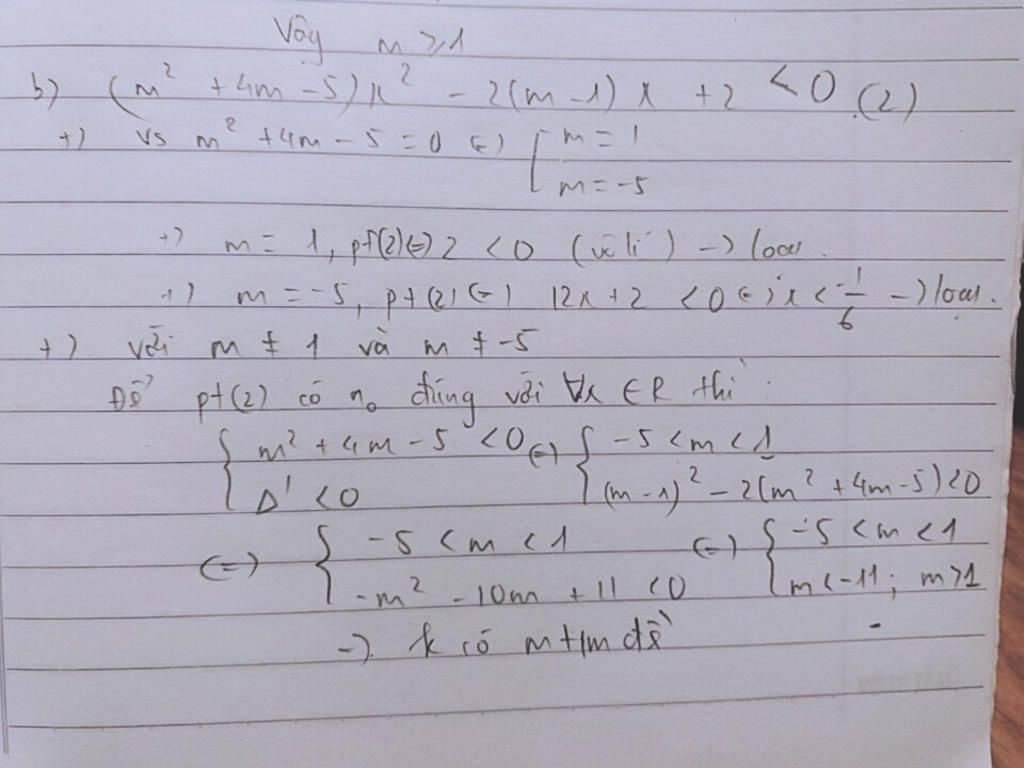 Vậy m ≥ 1
b) (m² + 4m - 5)x² - 2(m - 1)x + 2 < 0 (2)
+) vs m² + 4m - 5 = 0 (=) [ m = 1
m = -5
+) m = 1, pt(2) (=) 2 < 0 (vô lí) -> loại.
+) m = -5, pt(2) (=) 12x + 2 < 0 (=) x < -1/6 -> loại.
+) với m ≠ 1 và m ≠ -5
Để pt(2) có n₀ đúng với ∀x ∈ R thì:
{ m² + 4m - 5 < 0 (=) { -5 < m < 1
Δ' < 0 (m - 1)² - 2(m² + 4m - 5) < 0
(=) { -5 < m < 1 (=) { -5 < m < 1
-m² - 10m + 11 < 0 m < -11; m > 1
-> k có m t/m đề